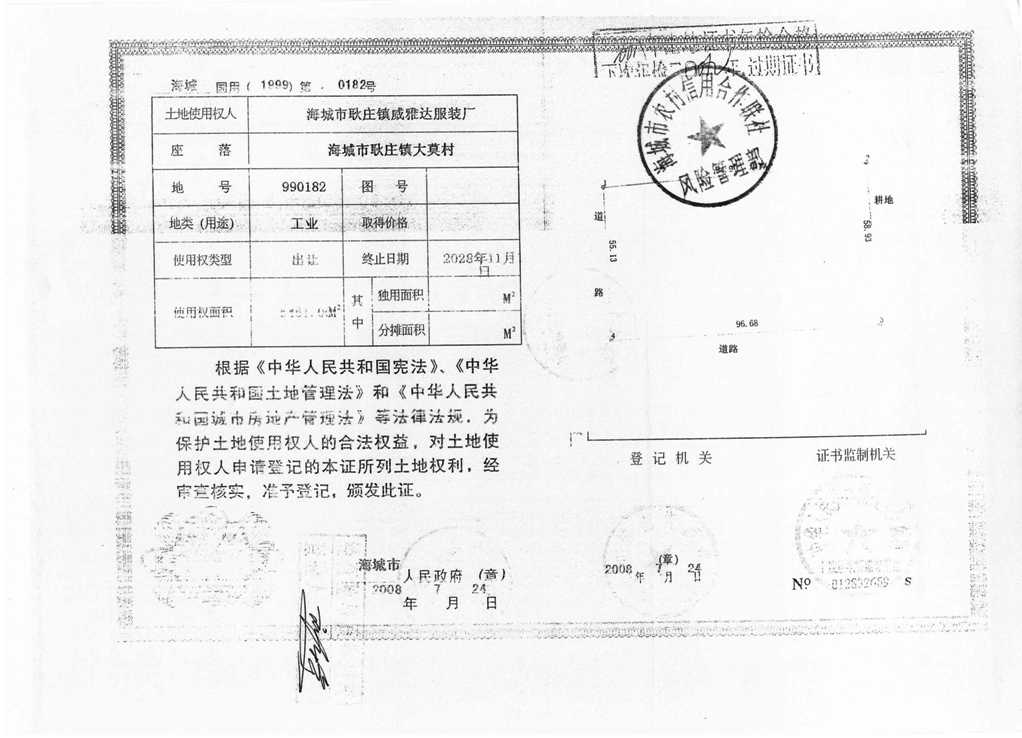 海城 国用(1999)第 0182号
土地使用权人 海城市耿庄镇威雅达服装厂
座 落 海城市耿庄镇大莫村
地 号 990182 图 号
地类(用途) 工业 取得价格
使用权类型 出让 终止日期 2028年11月
日
使用权面积 M² 其中 独用面积 M²
分摊面积 M²
根据《中华人民共和国宪法》、《中华
人民共和国土地管理法》和《中华人民共
和国城市房地产管理法》等法律法规,为
保护土地使用权人的合法权益,对土地使
用权人申请登记的本证所列土地权利,经
审查核实,准予登记,颁发此证。
海城市
人民政府 (章)
2008 7 24
年 月 日
过期证书
海城市农村信用合作联社
风险管理部
2
耕地
58.93
道
55.13
路
96.68
道路
登记机关
证书监制机关
(章)
2008年7月24日
Nº S